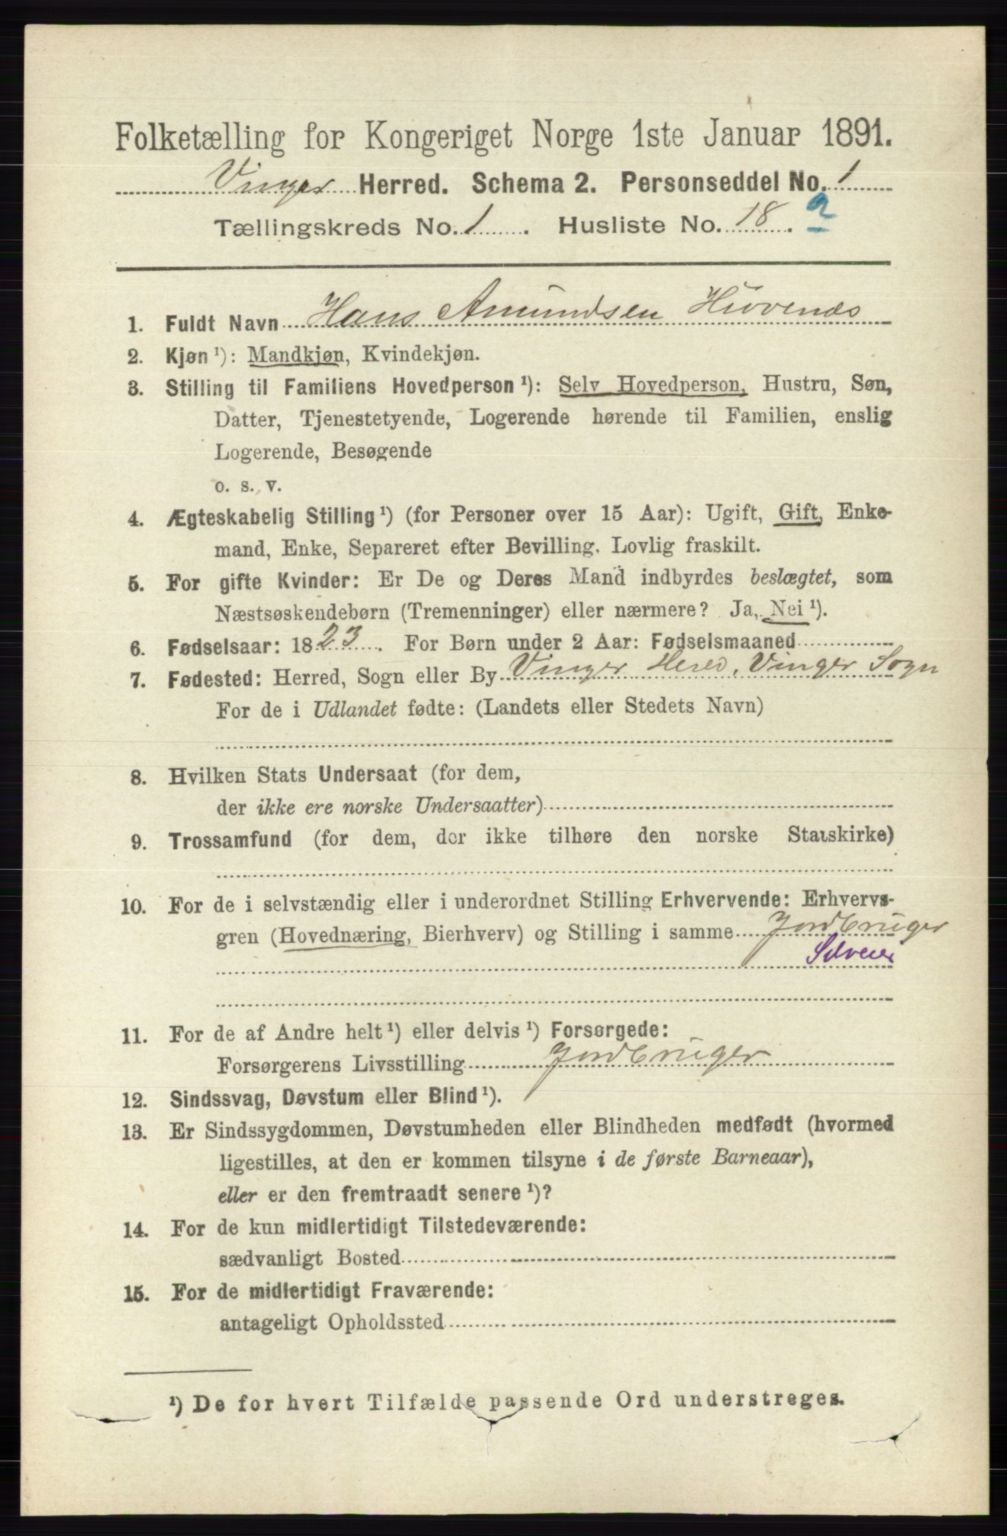 Folketælling for Kongeriget Norge 1ste Januar 1891.
Vinger Herred. Schema 2. Personseddel No. 1
Tællingskreds No. 1. Husliste No. 18. a
1. Fuldt Navn Hans Amundsen Huvenæs
2. Kjøn ¹): Mandkjøn, Kvindekjøn.
3. Stilling til Familiens Hovedperson ¹): Selv Hovedperson, Hustru, Søn,
Datter, Tjenestetyende, Logerende hørende til Familien, enslig
Logerende, Besøgende
o. s. v.
4. Ægteskabelig Stilling ¹) (for Personer over 15 Aar): Ugift, Gift, Enke-
mand, Enke, Separeret efter Bevilling. Lovlig fraskilt.
5. For gifte Kvinder: Er De og Deres Mand indbyrdes beslægtet, som
Næstsøskendebørn (Tremenninger) eller nærmere? Ja, Nei ¹).
6. Fødselsaar: 1823. For Børn under 2 Aar: Fødselsmaaned
7. Fødested: Herred, Sogn eller By Vinger Hered, Vinger Sogn
For de i Udlandet fødte: (Landets eller Stedets Navn)
8. Hvilken Stats Undersaat (for dem,
der ikke ere norske Undersaatter)
9. Trossamfund (for dem, der ikke tilhøre den norske Statskirke)
10. For de i selvstændig eller i underordnet Stilling Erhvervende: Erhvervs-
gren (Hovednæring, Bierhverv) og Stilling i samme Jordbruger
Selveier
11. For de af Andre helt ¹) eller delvis ¹) Forsørgede:
Forsørgerens Livsstilling Jordbruger
12. Sindssvag, Døvstum eller Blind ¹).
13. Er Sindssygdommen, Døvstumheden eller Blindheden medfødt (hvormed
ligestilles, at den er kommen tilsyne i de første Barneaar),
eller er den fremtraadt senere ¹)?
14. For de kun midlertidigt Tilstedeværende:
sædvanligt Bosted
15. For de midlertidigt Fraværende:
antageligt Opholdssted
¹) De for hvert Tilfælde passende Ord understreges.